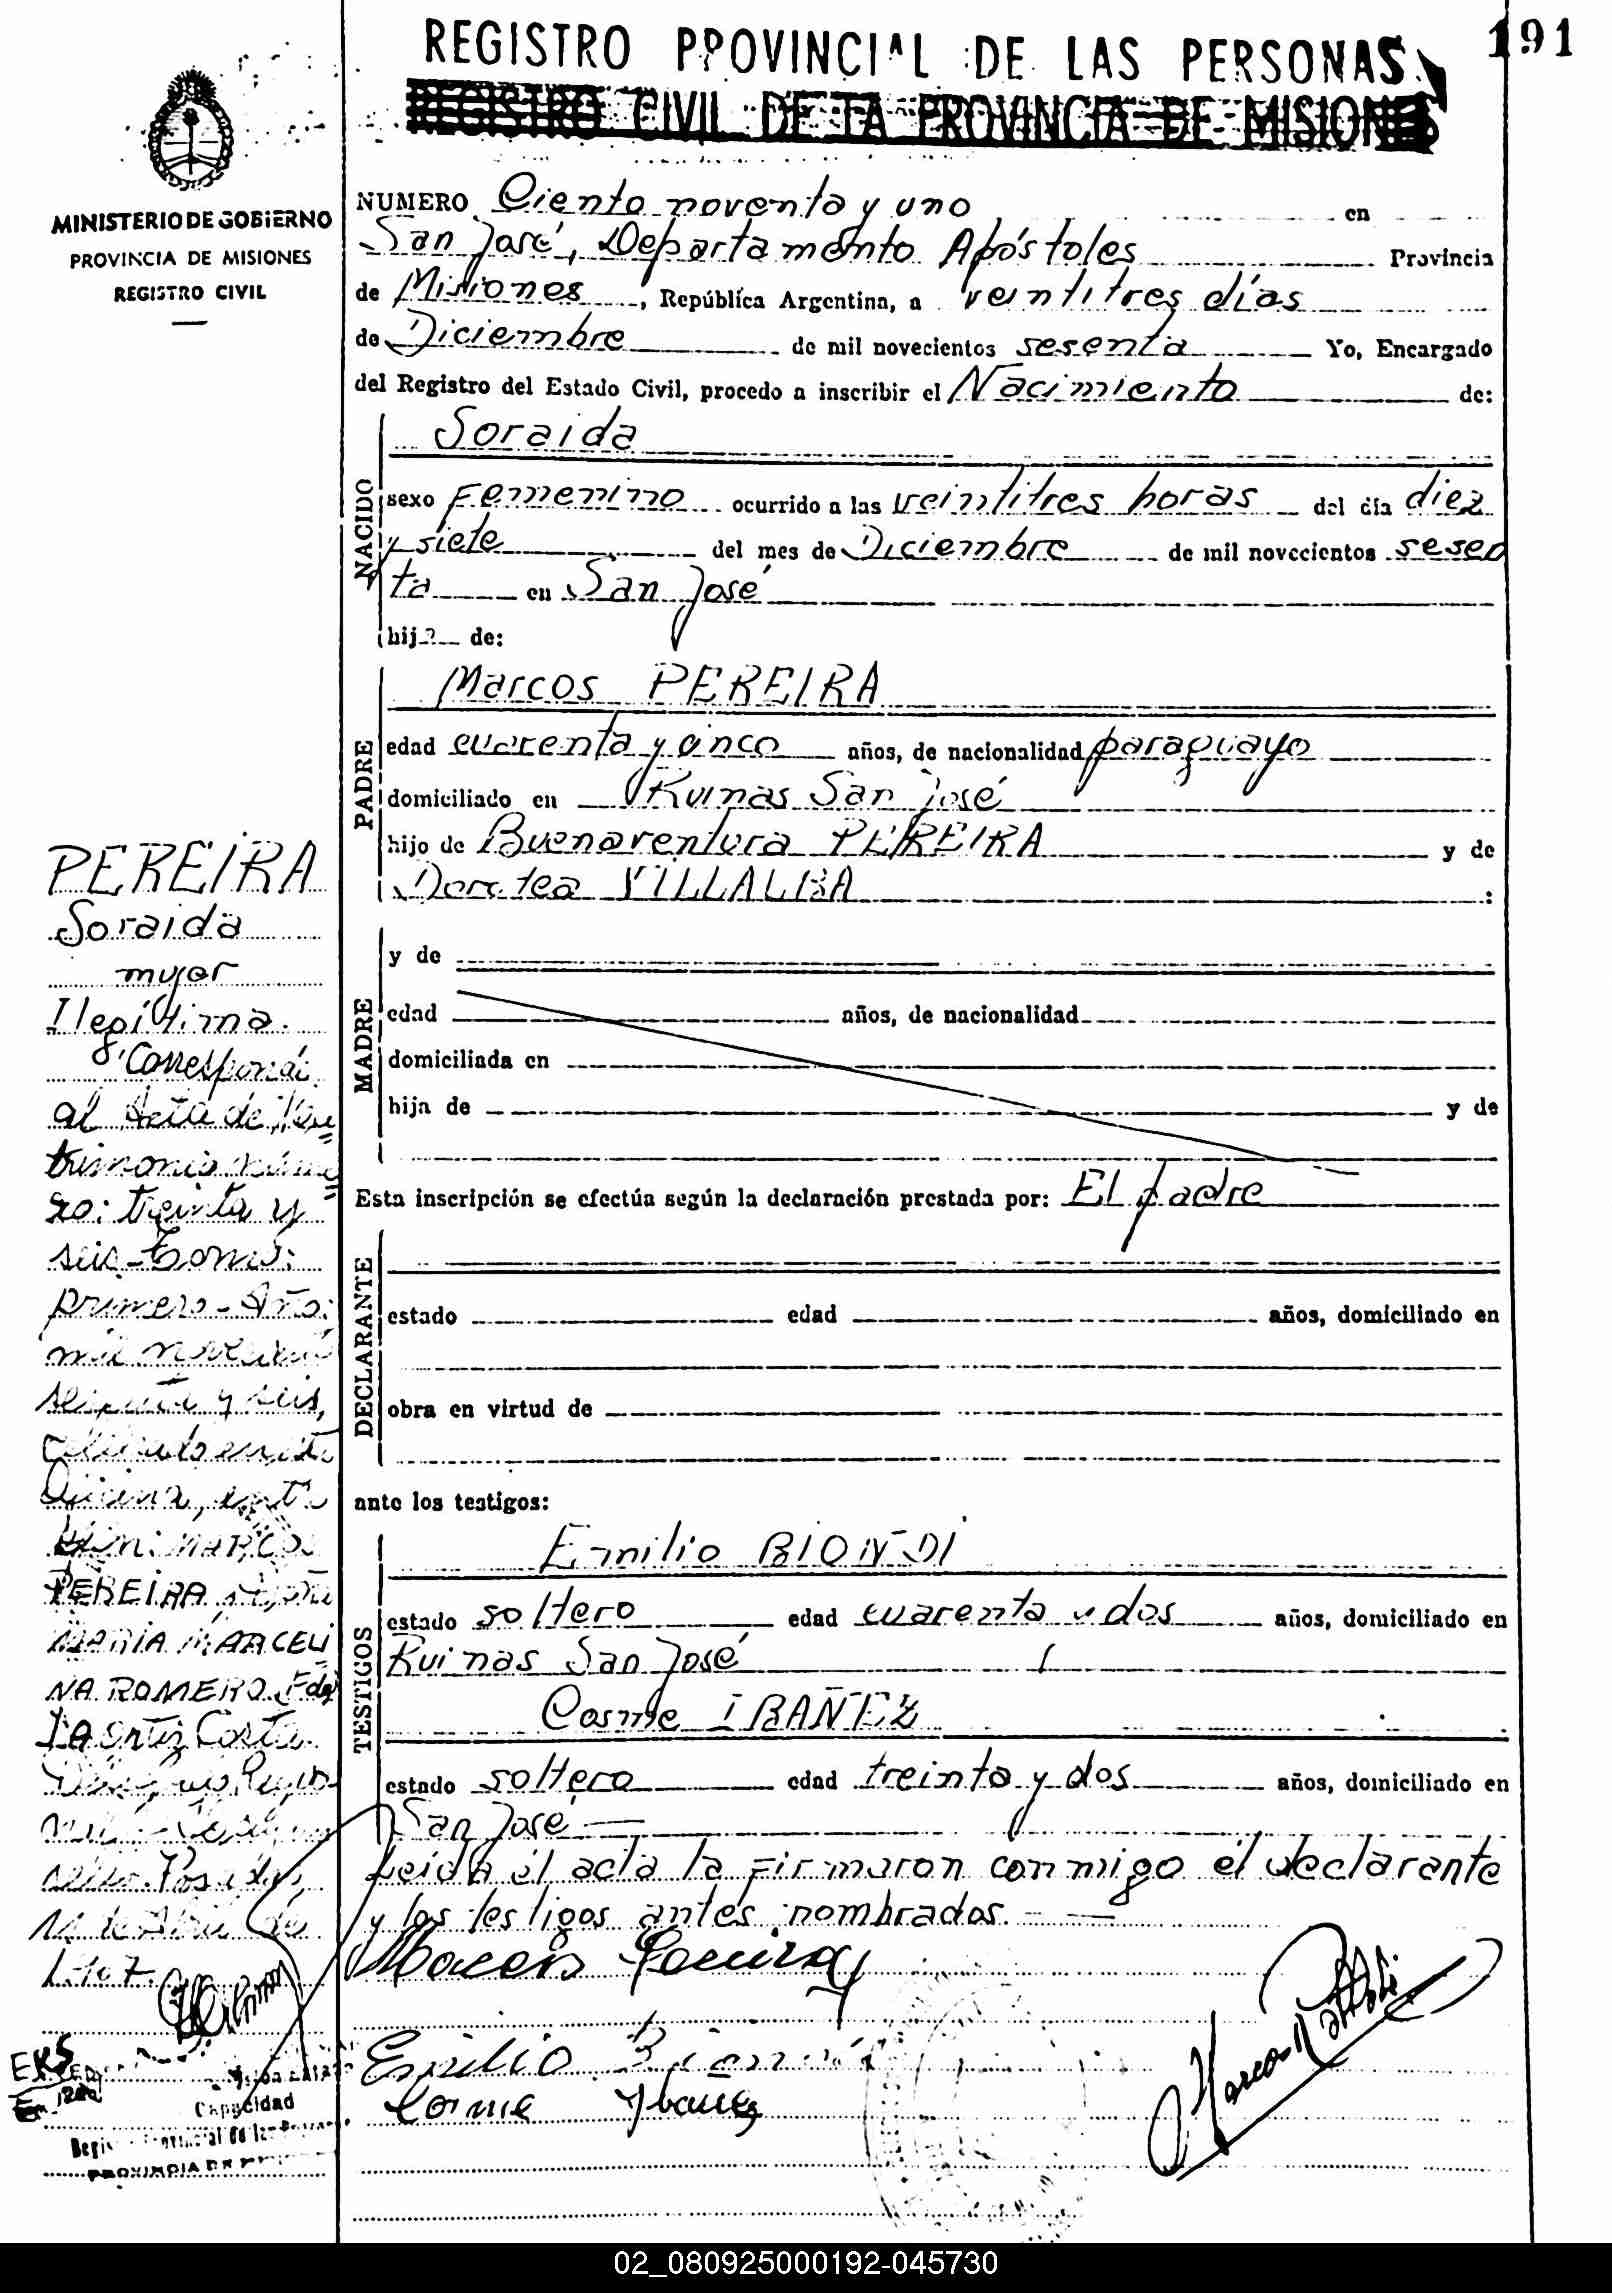 191
REGISTRO PROVINCIAL DE LAS PERSONAS
REGISTRO CIVIL DE LA PROVINCIA DE MISIONES
MINISTERIO DE GOBIERNO
PROVINCIA DE MISIONES
REGISTRO CIVIL
NUMERO Ciento noventa y uno en
San José, Departamento Apóstoles Provincia
de Misiones, República Argentina, a veintitres días
de Diciembre de mil novecientos sesenta Yo, Encargado
del Registro del Estado Civil, procedo a inscribir el Nacimiento de:
NACIDO
Soraida
sexo Femenino ocurrido a las veintitres horas del día diez
y siete del mes de Diciembre de mil novecientos sesen
ta en San José
hija de:
PADRE
Marcos PEREIRA
edad cuarenta y cinco años, de nacionalidad paraguayo
domiciliado en Ruinas San José
hijo de Buenaventura PEREIRA y de
Dorotea VILLALBA :
MADRE
y de
edad años, de nacionalidad
domiciliada en
hija de y de
Esta inscripción se efectúa según la declaración prestada por: El padre
DECLARANTE
estado edad años, domiciliado en
obra en virtud de
ante los testigos:
TESTIGOS
Emilio BIONDI
estado soltero edad cuarenta y dos años, domiciliado en
Ruinas San José
Cosme IBAÑEZ
estado soltero edad treinta y dos años, domiciliado en
San José —
Leida el acta la firmaron conmigo el declarante
y los testigos antes nombrados. —
Marcos Pereira
Emilio Biondi
Cosme Ybañez
PEREIRA
Soraida
mujer
Ilegítima.
Corresponde
al Acta de Ma=
trimonio núme=
ro: treinta y
seis - Tomo:
primero - Año:
mil novecientos
sesenta y seis,
celebrado en esta
Oficina, entre
Don: MARCOS
PEREIRA y Doña
MARIA MARCELI
NA ROMERO. Fdo
Ortiz Costa
Posadas,
11 de Abril de
1967.
Capacidad
Registro Provincial de las Personas
PROVINCIA DE
02_080925000192-045730